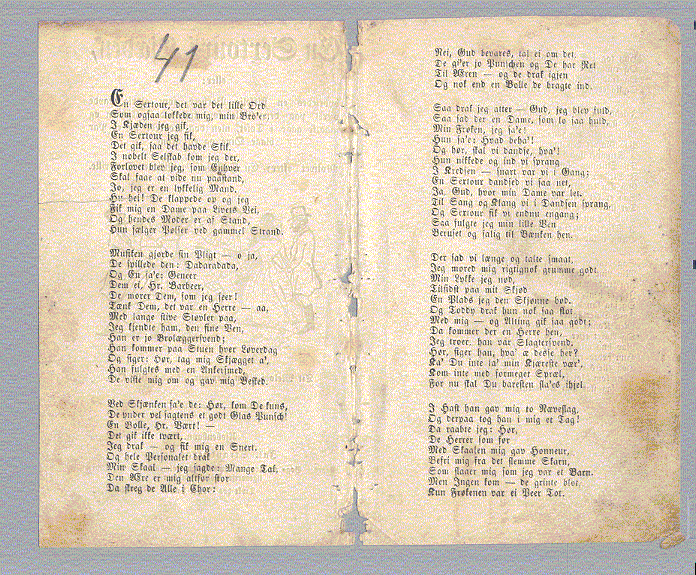 41
En Sertour, det var det lille Ord
Som ogsaa lokkede mig, min Bro'er,
I Kjæden jeg gik,
En Sertour jeg fik,
Det gik, saa det havde Skik.
I nobelt Selskab kom jeg der,
Forlovet blev jeg, som Enhver
Skal faae at vide nu paastand,
Jo, jeg er en lykkelig Mand.
Hu hei! De klappede op og jeg
Fik mig en Dame paa Livets Vei,
Og hendes Moder er af Stand,
Hun sælger Pølser ved gammel Strand.
Musiken gjorde sin Pligt — o ja,
De spillede den: Dadaradada,
Og En sa'e: Geneer
Dem ei, Hr. Barbeer,
De morer Dem, som jeg seer!
Tænk Dem, det var en Herre — aa,
Med lange stive Støvler paa,
Jeg kjendte ham, den fine Ven,
Han er jo Brolæggersvend;
Han kommer paa Stuen hver Løverdag
Og siger: Hør, tag mig Skjægget a',
Han fulgtes med en Ankersmed,
De viste mig om og gav mig Besked.
Ved Skjænken sa'e de: Hør, kom De kuns,
De ynder vel sagtens et godt Glas Punsch!
En Bolle, Hr. Vært! —
Det gik ikke tvært,
Jeg drak — og fik mig en Snert.
Og hele Personalet drak
Min Skaal — jeg sagde: Mange Tak,
Den Ære er mig altfor stor
Da skreg de Alle i Chor:
Nei, Gud bevares, tal ei om det,
De gi'er jo Punschen og De har Ret
Til Æren — og de drak igjen
Og nok end en Bolle de bragte ind.
Saa drak jeg atter — Gud, jeg blev fuld,
Saa sad der en Dame, som lo saa huld,
Min Frøken, jeg sa'e!
Hun sa'e: Hvad beha'!
Og hør, skal vi dandse, hva'!
Hun nikkede og ind vi sprang
I Kredsen — snart var vi i Gang;
En Sertour dandsed vi saa net,
Ja, Gud, hvor min Dame var let.
Til Sang og Klang vi i Dandsen sprang,
Og Sertour fik vi endnu engang;
Saa fulgte jeg min lille Ven
Beruset og salig til Bænken hen.
Der sad vi længe og talte smaat,
Jeg mored mig rigtignok grumme godt.
Min Lykke jeg nød,
Tilsidst paa mit Skjød
En Plads jeg den Skjønne bød.
Og Toddy drak hun nok saa flot
Med mig — og Alting gik saa godt;
Da kommer der en Herre hen,
Jeg troer, han var Slagtersvend.
Hør, siger han, hva' æ desse her?
Ka' Du inte la' min Kjæreste vær',
Kom inte med formeget Spræl,
For nu skal Du baresten sla'es ihjel.
I Hast han gav mig to Næveslag,
Og derpaa tog han i mig et Tag!
Da raabte jeg: Hør,
De Herrer som før
Med Skaalen mig gav Honneur,
Befri mig fra det slemme Skarn,
Som slaaer mig som jeg var et Barn.
Men Ingen kom — de grinte blot,
Kun Frøkenen var ei Peer Tot.